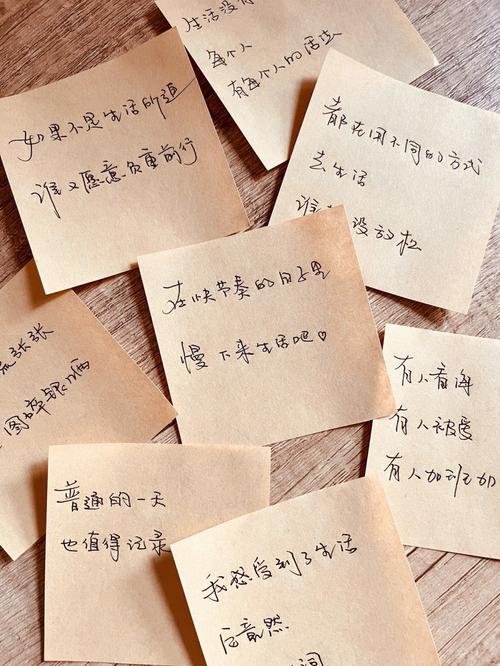 生活没有
每个人
有每个人的活法
如果不是生活所迫
谁又愿意负重前行
都在用不同的方式
去生活
谁 没放松
在快节奏的日子里
慢下来生活吧♡
张张
图碎银几两
有人看海
有人被爱
有人加到
普通的一天
也值得记录
我感受到了生活
后竟然
词